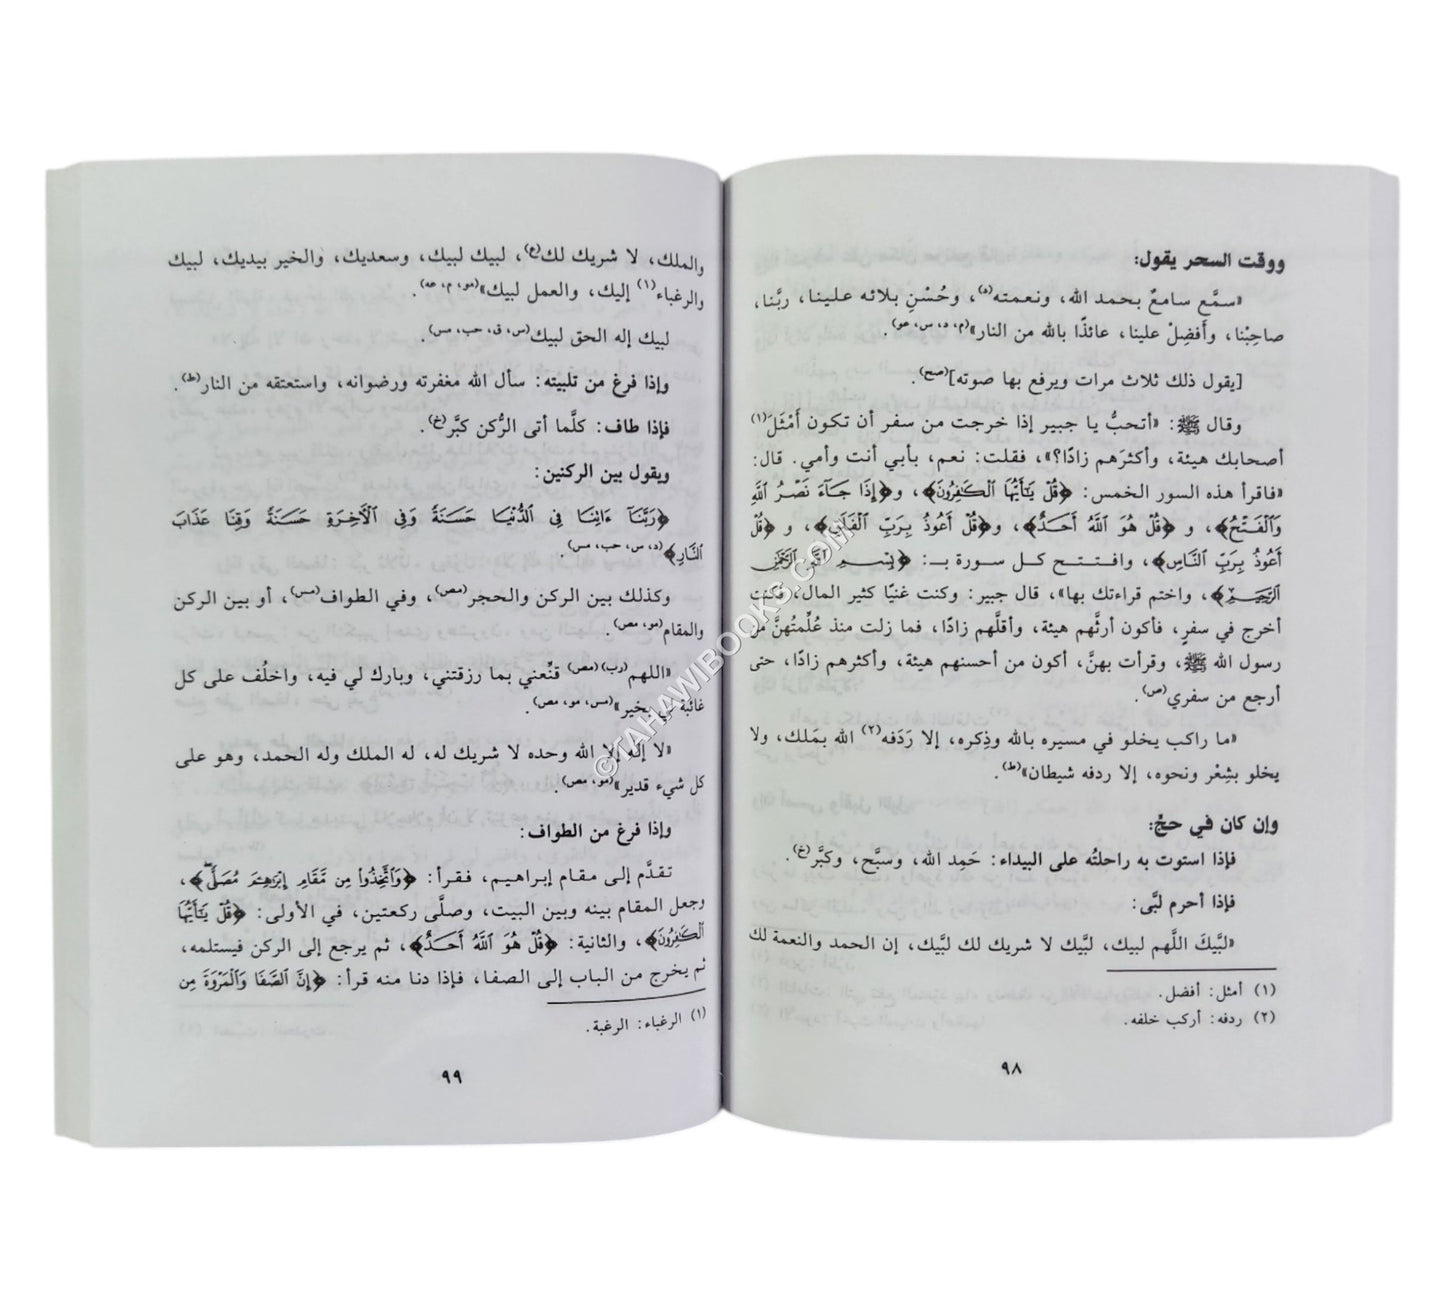 ووقت السحر يقول:
«سمَّع سامعٌ بحمد الله، ونعمته(د)، وحُسْنِ بلائه علينا، ربَّنا،
صاحِبْنا، وأَفضِلْ علينا، عائذًا بالله من النار»(م، د، س، عو).
[يقول ذلك ثلاث مرات ويرفع بها صوته](صح).
وقال ﷺ: «أتحبُّ يا جبير إذا خرجت من سفر أن تكون أَمْثَلَ(١)
أصحابك هيئة، وأكثرَهم زادًا؟»، فقلت: نعم، بأبي أنت وأمي. قال:
«فاقرأ هذه السور الخمس: ﴿قُلْ يَٰٓأَيُّهَا ٱلْكَٰفِرُونَ﴾، و﴿إِذَا جَآءَ نَصْرُ ٱللَّهِ
وَٱلْفَتْحُ﴾، و ﴿قُلْ هُوَ ٱللَّهُ أَحَدٌ﴾، و﴿قُلْ أَعُوذُ بِرَبِّ ٱلْفَلَقِ﴾، و ﴿قُلْ
أَعُوذُ بِرَبِّ ٱلنَّاسِ﴾، وافتتح كل سورة بـ: ﴿بِسْمِ ٱللَّهِ ٱلرَّحْمَٰنِ
ٱلرَّحِيمِ﴾، واختم قراءتك بها»، قال جبير: وكنت غنيًا كثير المال، فكنت
أخرج في سفرٍ، فأكون أرثَّهم هيئة، وأقلَّهم زادًا، فما زلت منذ عُلِّمتُهنَّ من
رسول الله ﷺ، وقرأت بهنَّ، أكون من أحسنهم هيئة، وأكثرهم زادًا، حتى
أرجع من سفري(ص).
«ما راكب يخلو في مسيره بالله وذِكره، إلا رَدَفه(٢) الله بمَلك، ولا
يخلو بشِعْر ونحوه، إلا ردفه شيطان»(ط).
وإن كان في حجّ:
فإذا استوت به راحلتُه على البيداء: حَمِد الله، وسبَّح، وكبَّر(خ).
فإذا أحرم لبَّى:
«لبَّيكَ اللَّهم لبيك، لبَّيك لا شريك لك لبَّيك، إن الحمد والنعمة لك
(١) أمثل: أفضل.
(٢) ردفه: أركب خلفه.
٩٨
والملك، لا شريك لك(ع)، لبيك لبيك، وسعديك، والخير بيديك، لبيك
والرغباء(١) إليك، والعمل لبيك»(مو، م، عه).
لبيك إله الحق لبيك(س، ق، حب، مس).
وإذا فرغ من تلبيته: سأل الله مغفرته ورضوانه، واستعتقه من النار(ط).
فإذا طاف: كلَّما أتى الرُّكن كبَّر(خ).
ويقول بين الركنين:
﴿رَبَّنَآ ءَاتِنَا فِى ٱلدُّنْيَا حَسَنَةً وَفِى ٱلْأَخِرَةِ حَسَنَةً وَقِنَا عَذَابَ
ٱلنَّارِ﴾(د، س، حب، مس).
وكذلك بين الركن والحجر(مص)، وفي الطواف(مس)، أو بين الركن
والمقام(مو، مص).
«اللهم(رب)(مص) قنِّعني بما رزقتني، وبارك لي فيه، واخلُف على كل
غائبة لي بخير»(مس، مو، مص).
«لا إله إلا الله وحده لا شريك له، له الملك وله الحمد، وهو على
كل شيء قدير»(مو، مص).
وإذا فرغ من الطواف:
تقدَّم إلى مقام إبراهيم، فقرأ: ﴿وَٱتَّخِذُوا۟ مِن مَّقَامِ إِبْرَٰهِۦمَ مُصَلًّى﴾،
وجعل المقام بينه وبين البيت، وصلَّى ركعتين، في الأولى: ﴿قُلْ يَٰٓأَيُّهَا
ٱلْكَٰفِرُونَ﴾، والثانية: ﴿قُلْ هُوَ ٱللَّهُ أَحَدٌ﴾، ثم يرجع إلى الركن فيستلمه،
ثم يخرج من الباب إلى الصفا، فإذا دنا منه قرأ: ﴿إِنَّ ٱلصَّفَا وَٱلْمَرْوَةَ مِن
(١) الرغباء: الرغبة.
٩٩
©TAHAWIBOOKS.COM